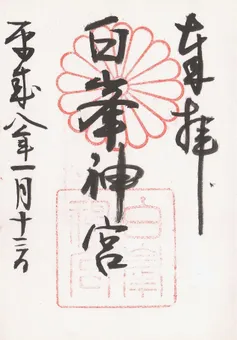 奉拝
白峯神宮
平成八年一月十三日
白峯神宮